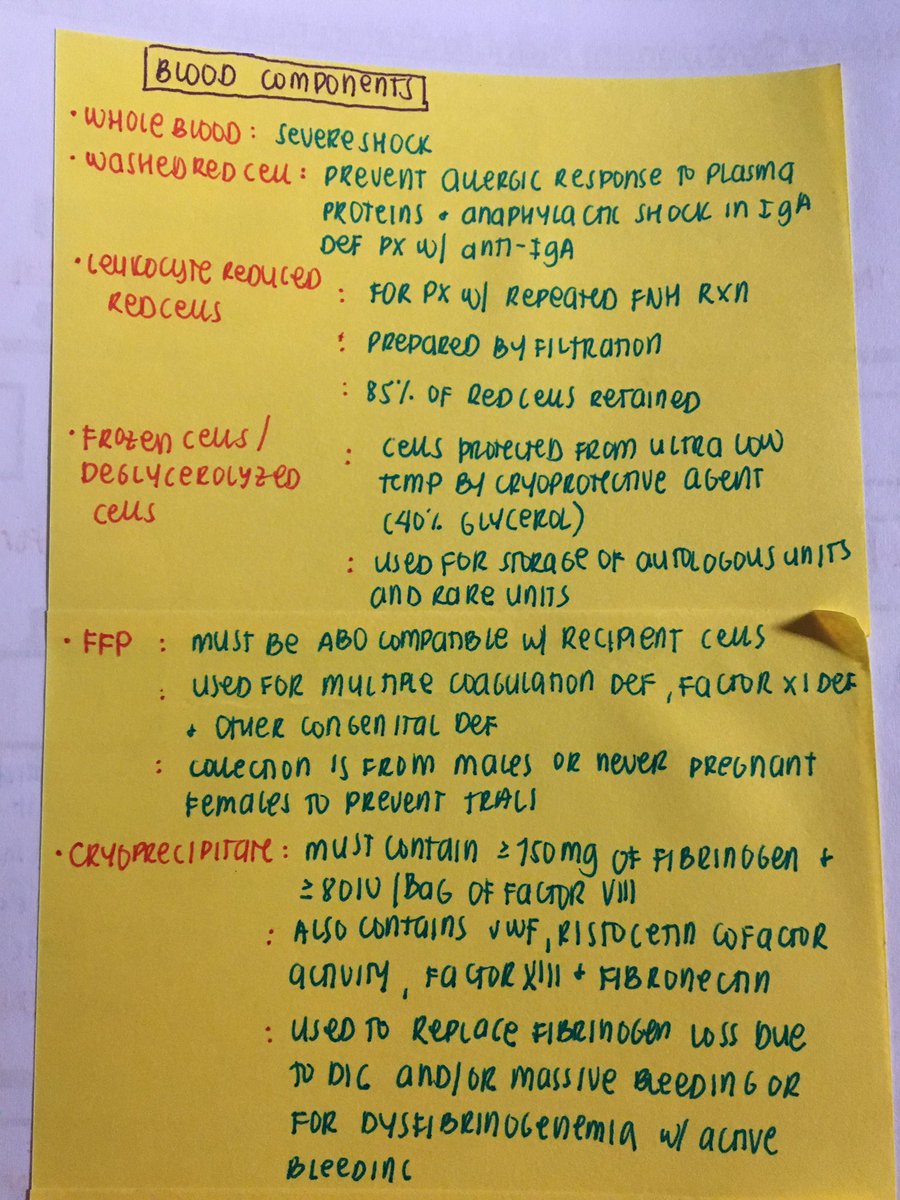 BLOOD COMPONENTS
• WHOLE BLOOD : SEVERE SHOCK
• WASHED RED CELL : PREVENT ALLERGIC RESPONSE TO PLASMA
PROTEINS + ANAPHYLACTIC SHOCK IN IgA
DEF PX W/ ANTI-IgA
• LEUKOCYTE REDUCED
RED CELLS
: FOR PX W/ REPEATED FNH RXN
: PREPARED BY FILTRATION
: 85% OF RED CELLS RETAINED
• FROZEN CELLS /
DEGLYCEROLYZED
CELLS
: CELLS PROTECTED FROM ULTRA LOW
TEMP BY CRYOPROTECTIVE AGENT
(40% GLYCEROL)
: USED FOR STORAGE OF AUTOLOGOUS UNITS
AND RARE UNITS
• FFP : MUST BE ABO COMPATIBLE W/ RECIPIENT CELLS
: USED FOR MULTIPLE COAGULATION DEF, FACTOR XI DEF
+ OTHER CONGENITAL DEF
: COLLECTION IS FROM MALES OR NEVER PREGNANT
FEMALES TO PREVENT TRALI
• CRYOPRECIPITATE : MUST CONTAIN ≥150mg OF FIBRINOGEN +
≥80IU/BAG OF FACTOR VIII
: ALSO CONTAINS VWF, RISTOCETIN COFACTOR
ACTIVITY, FACTOR XIII + FIBRONECTIN
: USED TO REPLACE FIBRINOGEN LOSS DUE
TO DIC AND/OR MASSIVE BLEEDING OR
FOR DYSFIBRINOGENEMIA W/ ACTIVE
BLEEDING